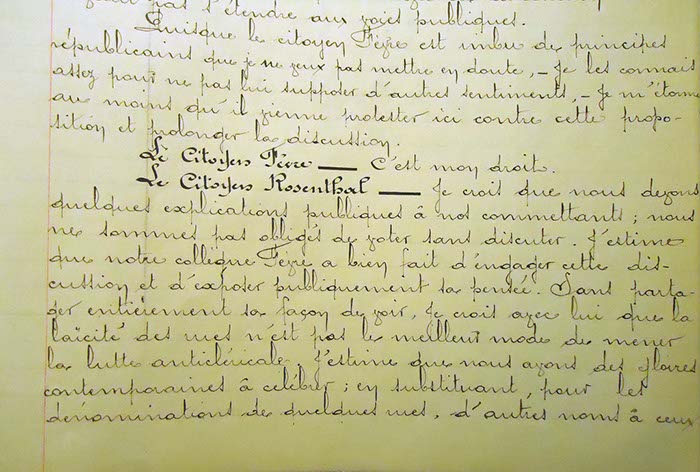 pas s'étendre aux voies publiques.
Puisque le citoyen Fèvre est imbu de principes
républicains que je ne veux pas mettre en doute, - Je les connais
assez pour ne pas lui supposer d'autres sentiments, - Je m'étonne
au moins qu'il vienne protester ici contre cette propo-
sition et prolonger la discussion.
Le Citoyen Fèvre — C'est mon droit.
Le Citoyen Rosenthal — Je crois que nous devons
quelques explications publiques à nos commettants ; nous
ne sommes pas obligés de voter sans discuter. J'estime
que notre collègue Fèvre a bien fait d'engager cette dis-
cussion et d'exposer publiquement sa pensée. Sans parta-
ger entièrement sa façon de voir, je crois avec lui que la
laïcité des rues n'est pas le meilleur mode de mener
la lutte anticléricale. J'estime que nous avons des gloires
contemporaines à célébrer ; en substituant, pour les
dénominations de quelques rues, d'autres noms à ceux